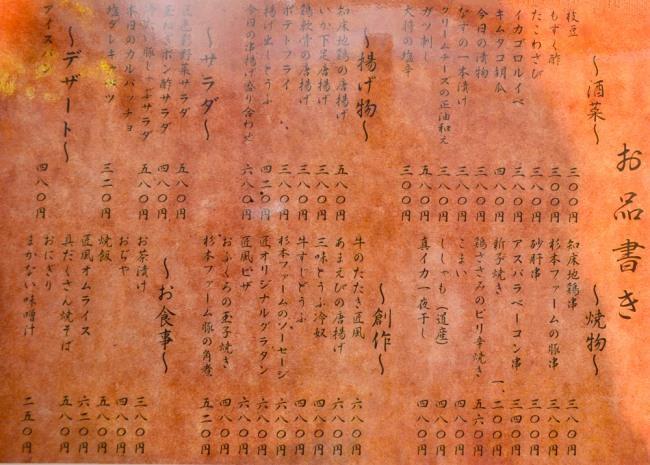 お品書き
～酒菜～
枝豆 三〇〇円
もずく酢 三八〇円
たこわさび 三〇〇円
イカゴロルイベ 三八〇円
キムタコ胡瓜 四八〇円
今日の漬物 三〇〇円
なすの一本漬け 三八〇円
クリームチーズの正油和え 三八〇円
ガツ刺し 三〇〇円
大将の塩辛 三〇〇円
～揚げ物～
知床地鶏の唐揚げ 五八〇円
いか下足唐揚げ 三八〇円
鶏軟骨の唐揚げ 三八〇円
ポテトフライ 三八〇円
揚げ出しとうふ 四二〇円
今日の串揚げ盛り合わせ 六八〇円
～サラダ～
野菜サラダ 五八〇円
ポン酢サラダ 四八〇円
豚しゃぶサラダ 五八〇円
本日のカルパッチョ
塩ダレキャベツ 三二〇円
～デザート～
アイスパン 四八〇円
～焼物～
知床地鶏串 三八〇円
杉本ファームの豚串 三八〇円
砂肝串 三〇〇円
アスパラベーコン串 三四〇円
新子焼き 一、二〇〇円
鶏ささみのピリ辛焼き 五六〇円
こまい 四八〇円
ししゃも（道産） 四八〇円
真イカ一夜干し 四八〇円
～創作～
牛のたたき匠風 六八〇円
あまえびの唐揚げ 六八〇円
三味とうふ冷奴 四八〇円
牛すじどうふ 四八〇円
杉本ファームのソーセージ 六八〇円
匠オリジナルグラタン 六八〇円
匠風ピザ 六八〇円
おふくろの玉子焼き 四八〇円
杉本ファーム豚の角煮 五二〇円
～お食事～
お茶漬け 三八〇円
おぢや 四八〇円
焼飯 五八〇円
匠風オムライス 六二〇円
具だくさん焼そば 五八〇円
おにぎり
まかない味噌汁 二五〇円